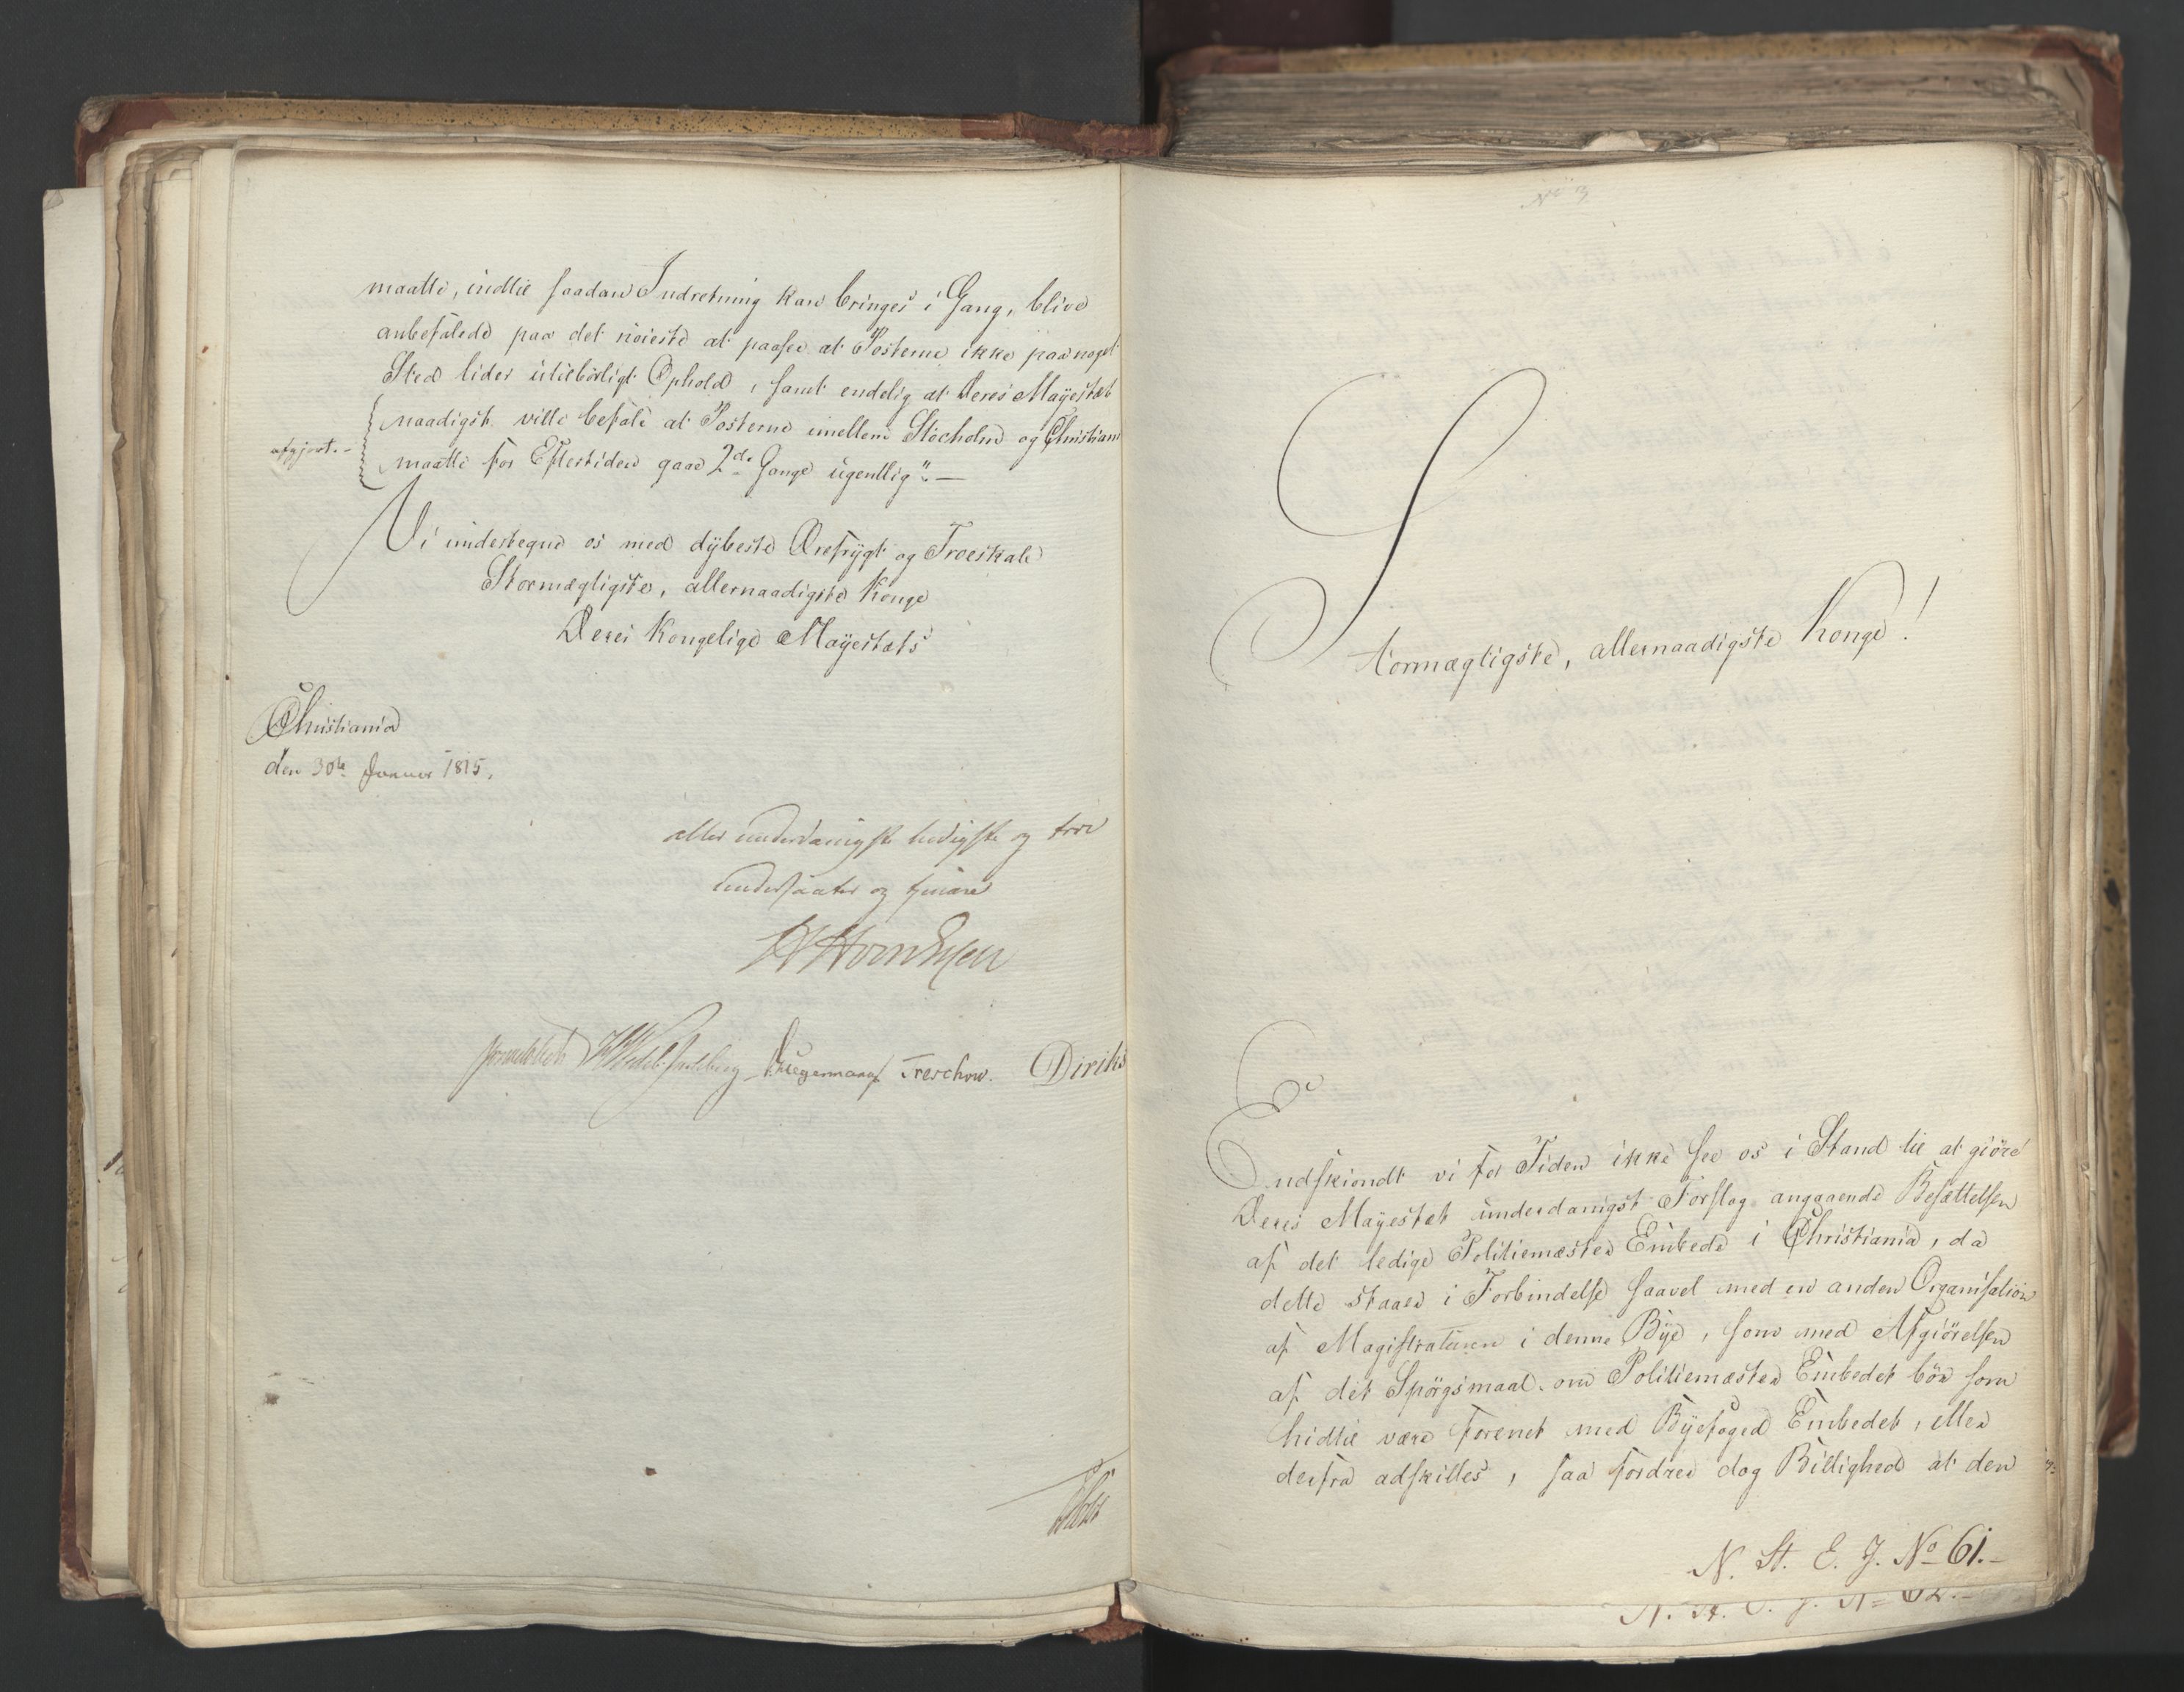 maatte, indtil saadan Indretning kan bringes i Gang, blive
anbefalede paa det nøieste at paasee at Posterne ikke paa noget
Sted lider utilbørligt Ophold, samt endelig at Deres Mayestæt
naadigst ville befale at Posterne imellem Stocholm og Christiania
afgjort.-
maatte for Eftertiden gaae 2de Gange ugentlig".—
Vi undertegne os med dybeste Ærefrygt og Troeskab
Stormægtigste, allernaadigste Konge
Deres Kongelige Mayestæts
Christiania
den 30te Januar 1815.
aller underdanigste lydigste og troe
undersaatter og tjenere
Sommerhielm HWedel Jarlsberg Krieger Treschow. Diriks
Holst
No 3
Stormægtigste, allernaadigste Konge!
Endskiøndt vi for Tiden ikke see os i Stand til at giöre
Deres Mayestæt underdanigst Forslag angaaende Besættelsen
af det ledige Politiemester Embede i Christiania, da
dette staaer i Forbindelse saavel med en anden Organisation
af Magistraturen i denne Bye, som med Afgiörelsen
af det Spörgsmaal om Politiemester Embedet bör som
hidtil være forenet med Byefoged Embedet, eller
derfra adskilles, saa fordrer dog Billighed at den
N. St. E. J. No 61.-
N. St. E. J. No 62.-